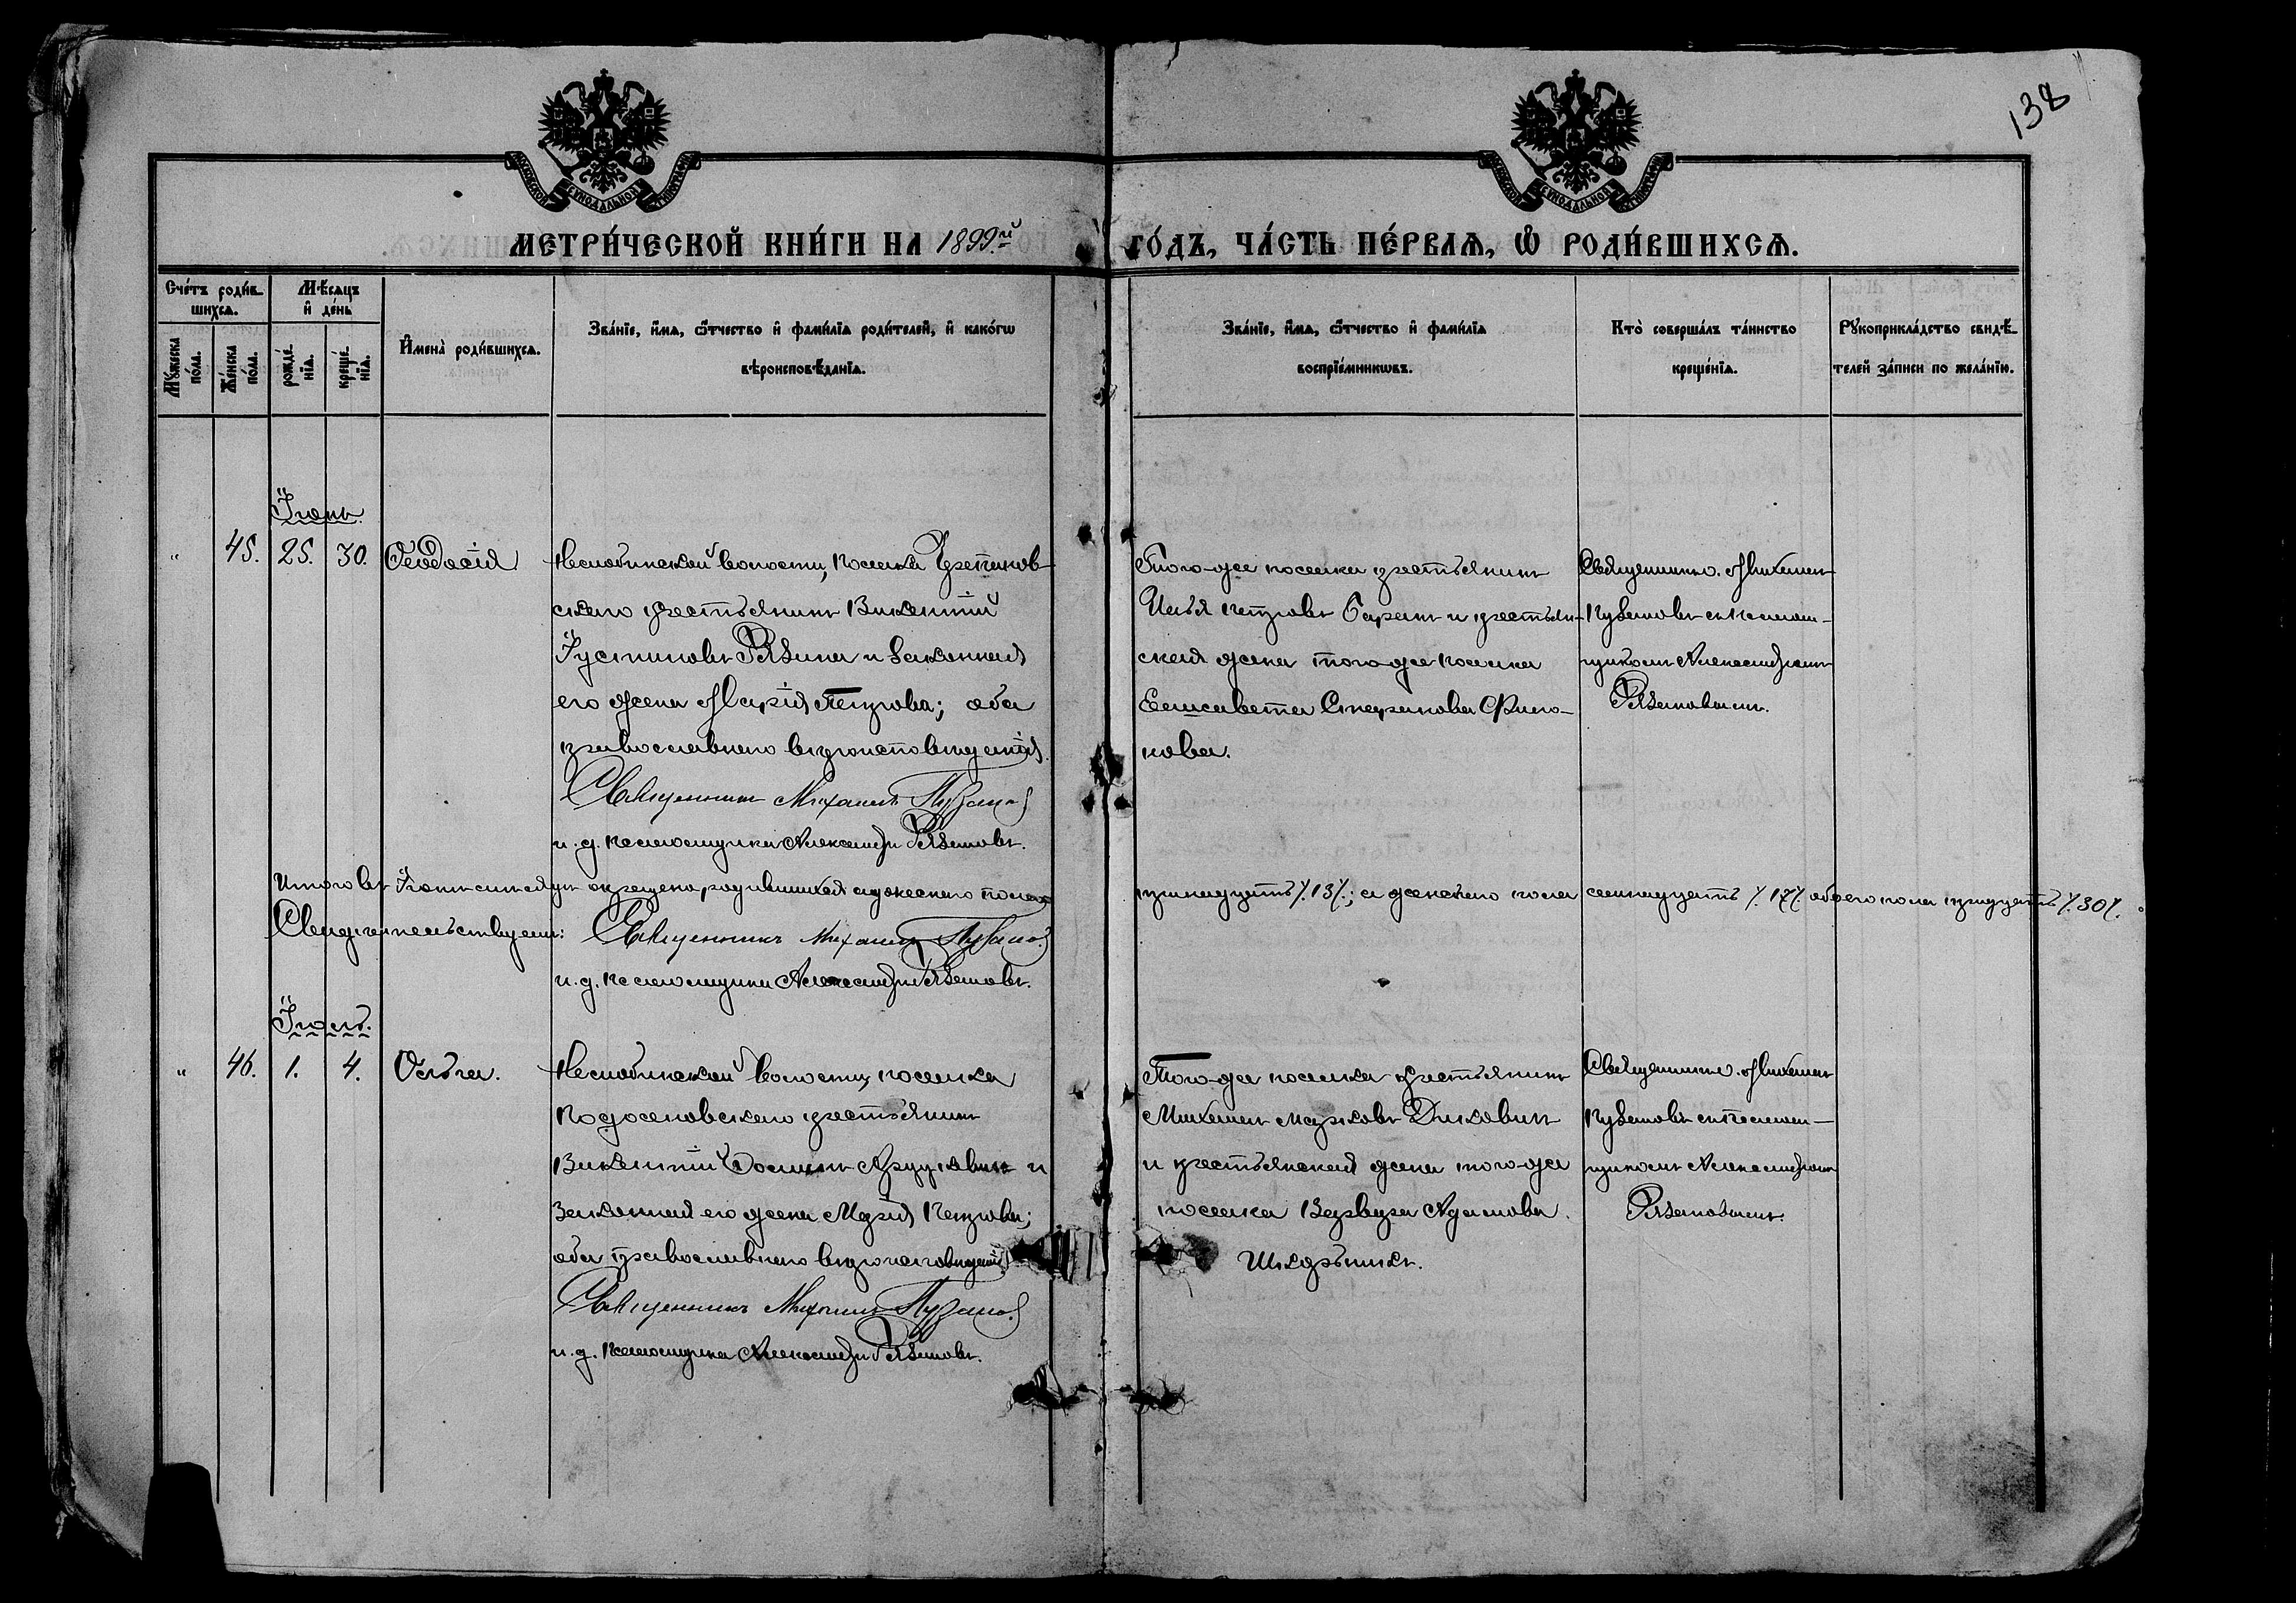 138
МЕТРИ́ЧЕСКОЙ КНИ́ГИ НА 1899й ГО́ДЪ, ЧА́СТЬ ПЕ́РВАѦ, Ѿ РОДИ́ВШИХСѦ.
Сче́тъ роди́в-
шихсѧ.
Мꙋ́жеска по́ла.
Же́нска по́ла.
Мѣ́сѧцъ
и҆ де́нь
рожде́нїѧ.
креще́нїѧ.
И҆мена̀ роди́вшихсѧ.
Зва́нїе, и҆́мѧ, ѻ҆́тчество и҆ фами́лїѧ роди́телей, и҆ како́гѡ
вѣроисповѣ́данїѧ.
Зва́нїе, и҆́мѧ, ѻ҆́тчество и҆ фами́лїѧ
воспрїе́мникѡвъ.
Кто̀ соверша́лъ та́инство
креще́нїѧ.
Рꙋкоприкла́дство свидѣ́-
телей за́писи по жела́нїю.
Іюнь.
" 45. 25. 30. Ѳеодосія
волости, поселка
скаго крестьянинъ Викентій
Іустиновъ и законная
его жена Марія Петрова; оба
православнаго вѣроисповѣданія.
Священникъ Михаилъ Пузановъ
и. д. псаломщика Александръ Рязановъ.
Того-же поселка крестьянинъ
Илья Петровъ и крестьян-
ская жена того-же поселка
Елисавета
нова.
Священникъ Михаилъ
Пузановъ съ псалом-
щикомъ Александромъ
Рязановымъ.
Итого въ Іюнѣ мѣсяцѣ окрещено, родившихся мужескаго пола тринадцать /13/; а женскаго пола семнадцать /17/ обоего пола тридцать /30/.
Свидѣтельствуемъ: Священникъ Михаилъ Пузановъ
и. д. псаломщика Александръ Рязановъ.
Іюль.
" 46. 1. 4. Ольга.
волости, поселка
крестьянинъ
Викентій и
законная его жена Марія Петрова;
оба православнаго вѣроисповѣданія.
Священникъ Михаилъ Пузановъ
и. д. псаломщика Александръ Рязановъ.
Того-же поселка крестьянинъ
Михаилъ Марковъ
и крестьянская жена того-же
поселка Варвара Адамова
Священникъ Михаилъ
Пузановъ съ псалом-
щикомъ Александромъ
Рязановымъ.